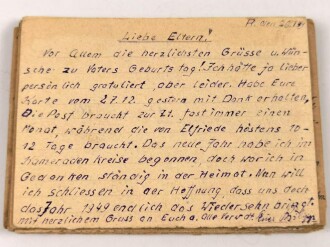 Liebe Eltern!
Vor Allem die herzlichsten Grüsse u. Wün-
sche zu Vaters Geburtstag! Ich hätte ja lieber
persönlich gratuliert, aber leider. Habe Eure
Karte vom 27.12. gestern mit Dank erhalten.
Die Post braucht zur Zt. fast immer einen
Monat, während die von Elfriede höstens 10-
12 Tage braucht. Das neue Jahr habe ich im
Kameraden Kreise begonnen, doch war ich in
Gedanken ständig in der Heimat. Nun will
ich schliessen in der Hoffnung dass uns doch
das Jahr 1949 endlich das Wiedersehn bringt.
mit herzlichem Gruss an Euch u. Alle Verwdt.